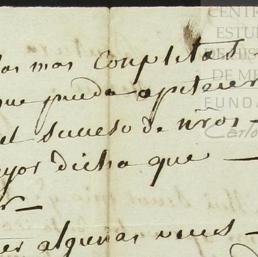 las mas completas
que pueda apetecer
el suceso de nros
yor dicha que
r
er algunas veces
CENTRO
ESTU
DE HIS
DE M
FUND
Carlo